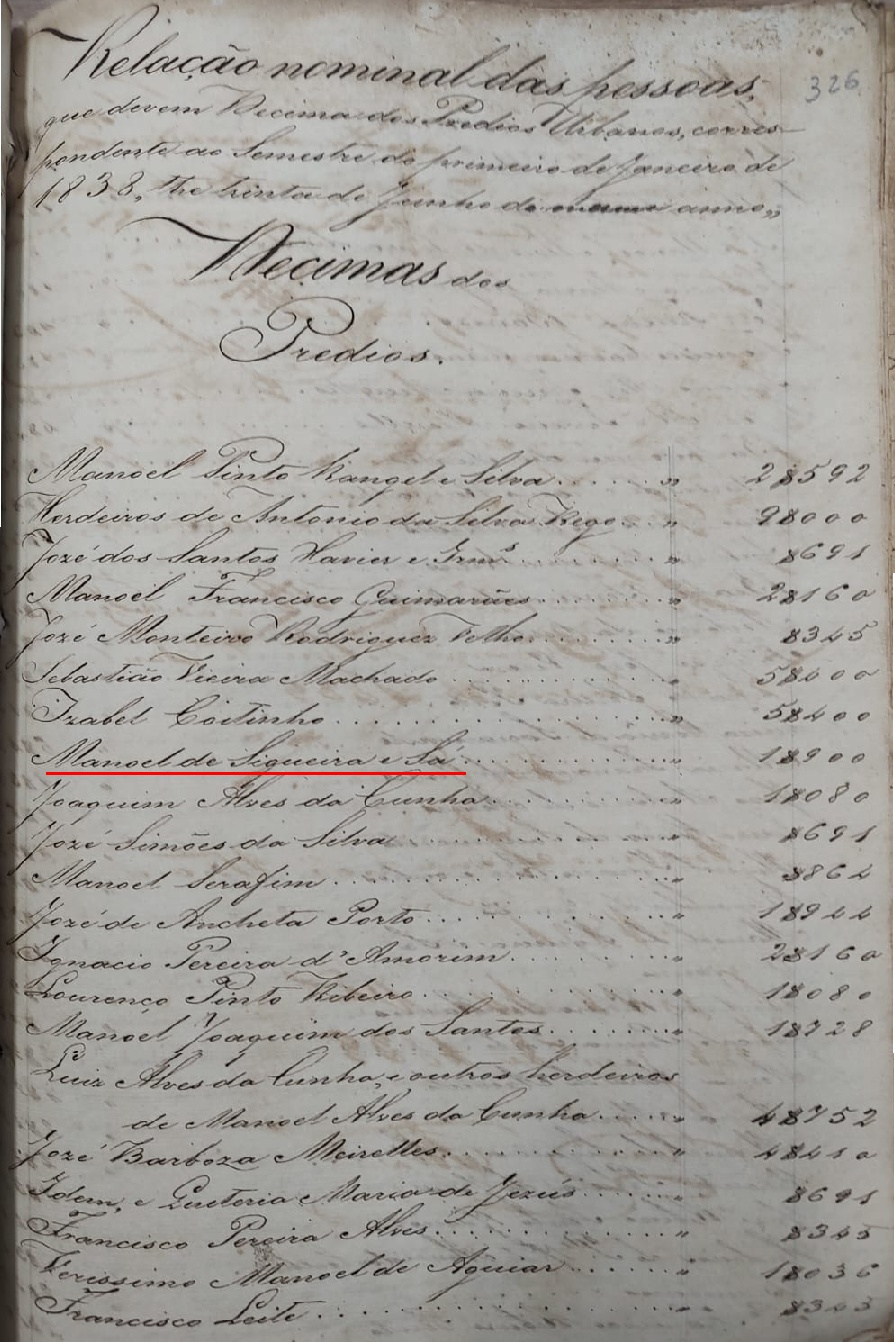 326
Relação nominal das pessoas,
que devem Decima dos Predios Urbanos, corres-
pondente ao Semestre do primeiro de Janeiro de
1838, the trinta de Junho do mesmo anno,,
Decimas dos
Predios.
Manoel Pinto Rangel e Silva . . . . . . " 2$592
Herdeiros de Antonio da Silva Rego . . " 9$000
Jozé dos Santos Xavier e Irmˢ . . . . . . " $691
Manoel Francisco Guimarães . . . . . . " 2$160
Jozé Monteiro Rodriguez Velho . . . . . . " $345
Sebastião Vieira Machado . . . . . . " 5$400
Izabel Coitinho . . . . . . " 5$400
Manoel de Siqueira e Sá . . . . . . " 1$900
Joaquim Alves da Cunha . . . . . . " 1$080
Jozé Simões da Silva . . . . . . " $691
Manoel Serafim . . . . . . " $864
Jozé de Ancheta Porto . . . . . . " 1$944
Ignacio Pereira d'Amorim . . . . . . " 2$160
Lourenço Pinto Ribeiro . . . . . . " 1$080
Manoel Joaquim dos Santos . . . . . . " 1$728
Luiz Alves da Cunha, e outros herdeiros
de Manoel Alves da Cunha . . . . . " 4$752
Jozé Barboza Meirelles . . . . . . "
Idem, e Quiteria Maria de Jezús . . . . . . " $691
Francisco Pereira Alves . . . . . . " $345
Verissimo Manoel de Aguiar . . . . . . " 1$036
Francisco Leite . . . . . . " $345